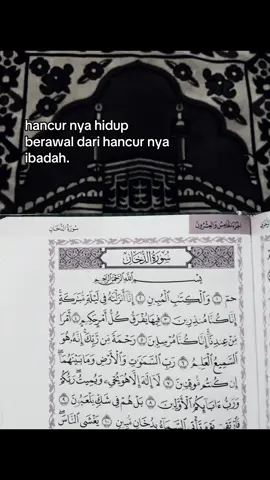 hancur nya hidup
berawal dari hancur nya
ibadah.
سُورَةُ الدُّخَانِ
الجُزءُ الخَامِسُ وَالعِشْرُونَ
سُورَةُ الدُّخَانِ
بِسْمِ اللَّهِ الرَّحْمَٰنِ الرَّحِيمِ
حمٓ ١ وَالْكِتَٰبِ الْمُبِينِ ٢ إِنَّآ أَنزَلْنَٰهُ فِى لَيْلَةٍ مُّبَٰرَكَةٍ
إِنَّا كُنَّا مُنذِرِينَ ٣ فِيهَا يُفْرَقُ كُلُّ أَمْرٍ حَكِيمٍ ٤ أَمْرًا
مِّنْ عِندِنَآ إِنَّا كُنَّا مُرْسِلِينَ ٥ رَحْمَةً مِّن رَّبِّكَ إِنَّهُۥ هُوَ
السَّمِيعُ الْعَلِيمُ ٦ رَبِّ السَّمَٰوَٰتِ وَالْأَرْضِ وَمَا بَيْنَهُمَآ
إِن كُنتُم مُّوقِنِينَ ٧ لَآ إِلَٰهَ إِلَّا هُوَ يُحْىِۦ وَيُمِيتُ رَبُّكُمْ
وَرَبُّ ءَابَآئِكُمُ الْأَوَّلِينَ ٨ بَلْ هُمْ فِى شَكٍّ يَلْعَبُونَ ٩
فَارْتَقِبْ يَوْمَ تَأْتِى السَّمَآءُ بِدُخَانٍ مُّبِينٍ ١٠ يَغْشَى النَّاسَ